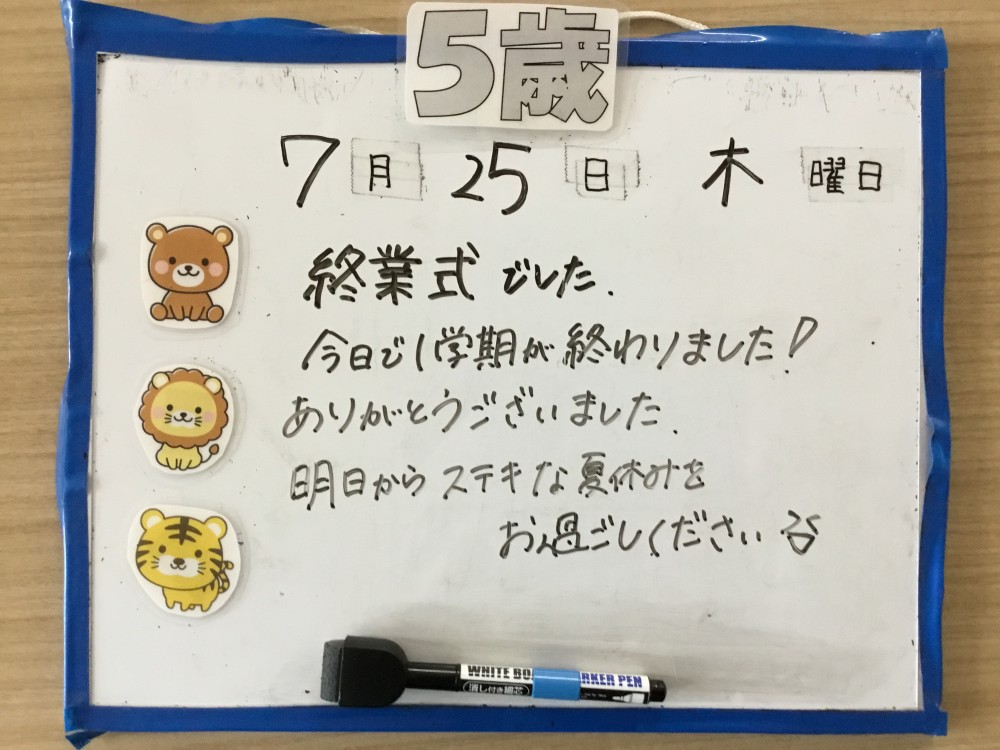 5歳
7月 25日 木曜日
終業式でした.
今日で1学期が終わりました!
ありがとうございました.
明日からステキな夏休みを
お過ごしください
WHITE BO RKER PEN
消し付き細芯